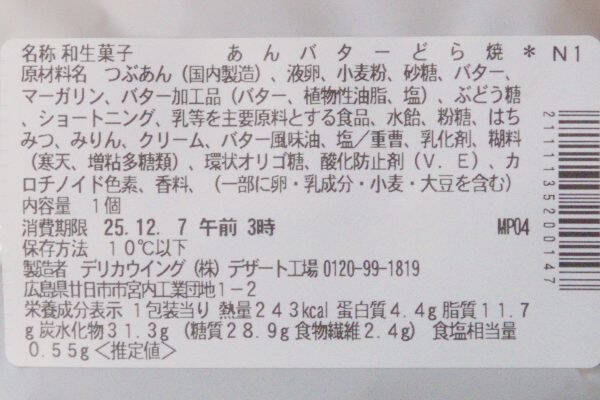 名称 和生菓子 あんバターどら焼*N1
原材料名 つぶあん(国内製造)、液卵、小麦粉、砂糖、バター、
マーガリン、バター加工品(バター、植物性油脂、塩)、ぶどう糖
、ショートニング、乳等を主要原料とする食品、水飴、粉糖、はち
みつ、みりん、クリーム、バター風味油、塩/重曹、乳化剤、糊料
(寒天、増粘多糖類)、環状オリゴ糖、酸化防止剤(V.E)、カ
ロチノイド色素、香料、(一部に卵・乳成分・小麦・大豆を含む)
内容量 1個
消費期限 25.12. 7 午前 3時 MP04
保存方法 10℃以下
製造者 デリカウイング(株) デザート工場 0120-99-1819
広島県廿日市市宮内工業団地1-2
栄養成分表示 1包装当り 熱量243kcal 蛋白質4.4g 脂質11.7
g 炭水化物31.3g(糖質28.9g 食物繊維2.4g) 食塩相当量
0.55g<推定値>
21111135200147